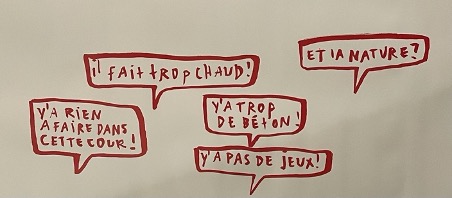 ET LA NATURE?
il FAit tROP CHAUD!
Y'A RIEN
A FAIRE DANS
CETTE COUR!
Y'A TROP
DE BÉTON!
Y'A PAS DE JEUX!